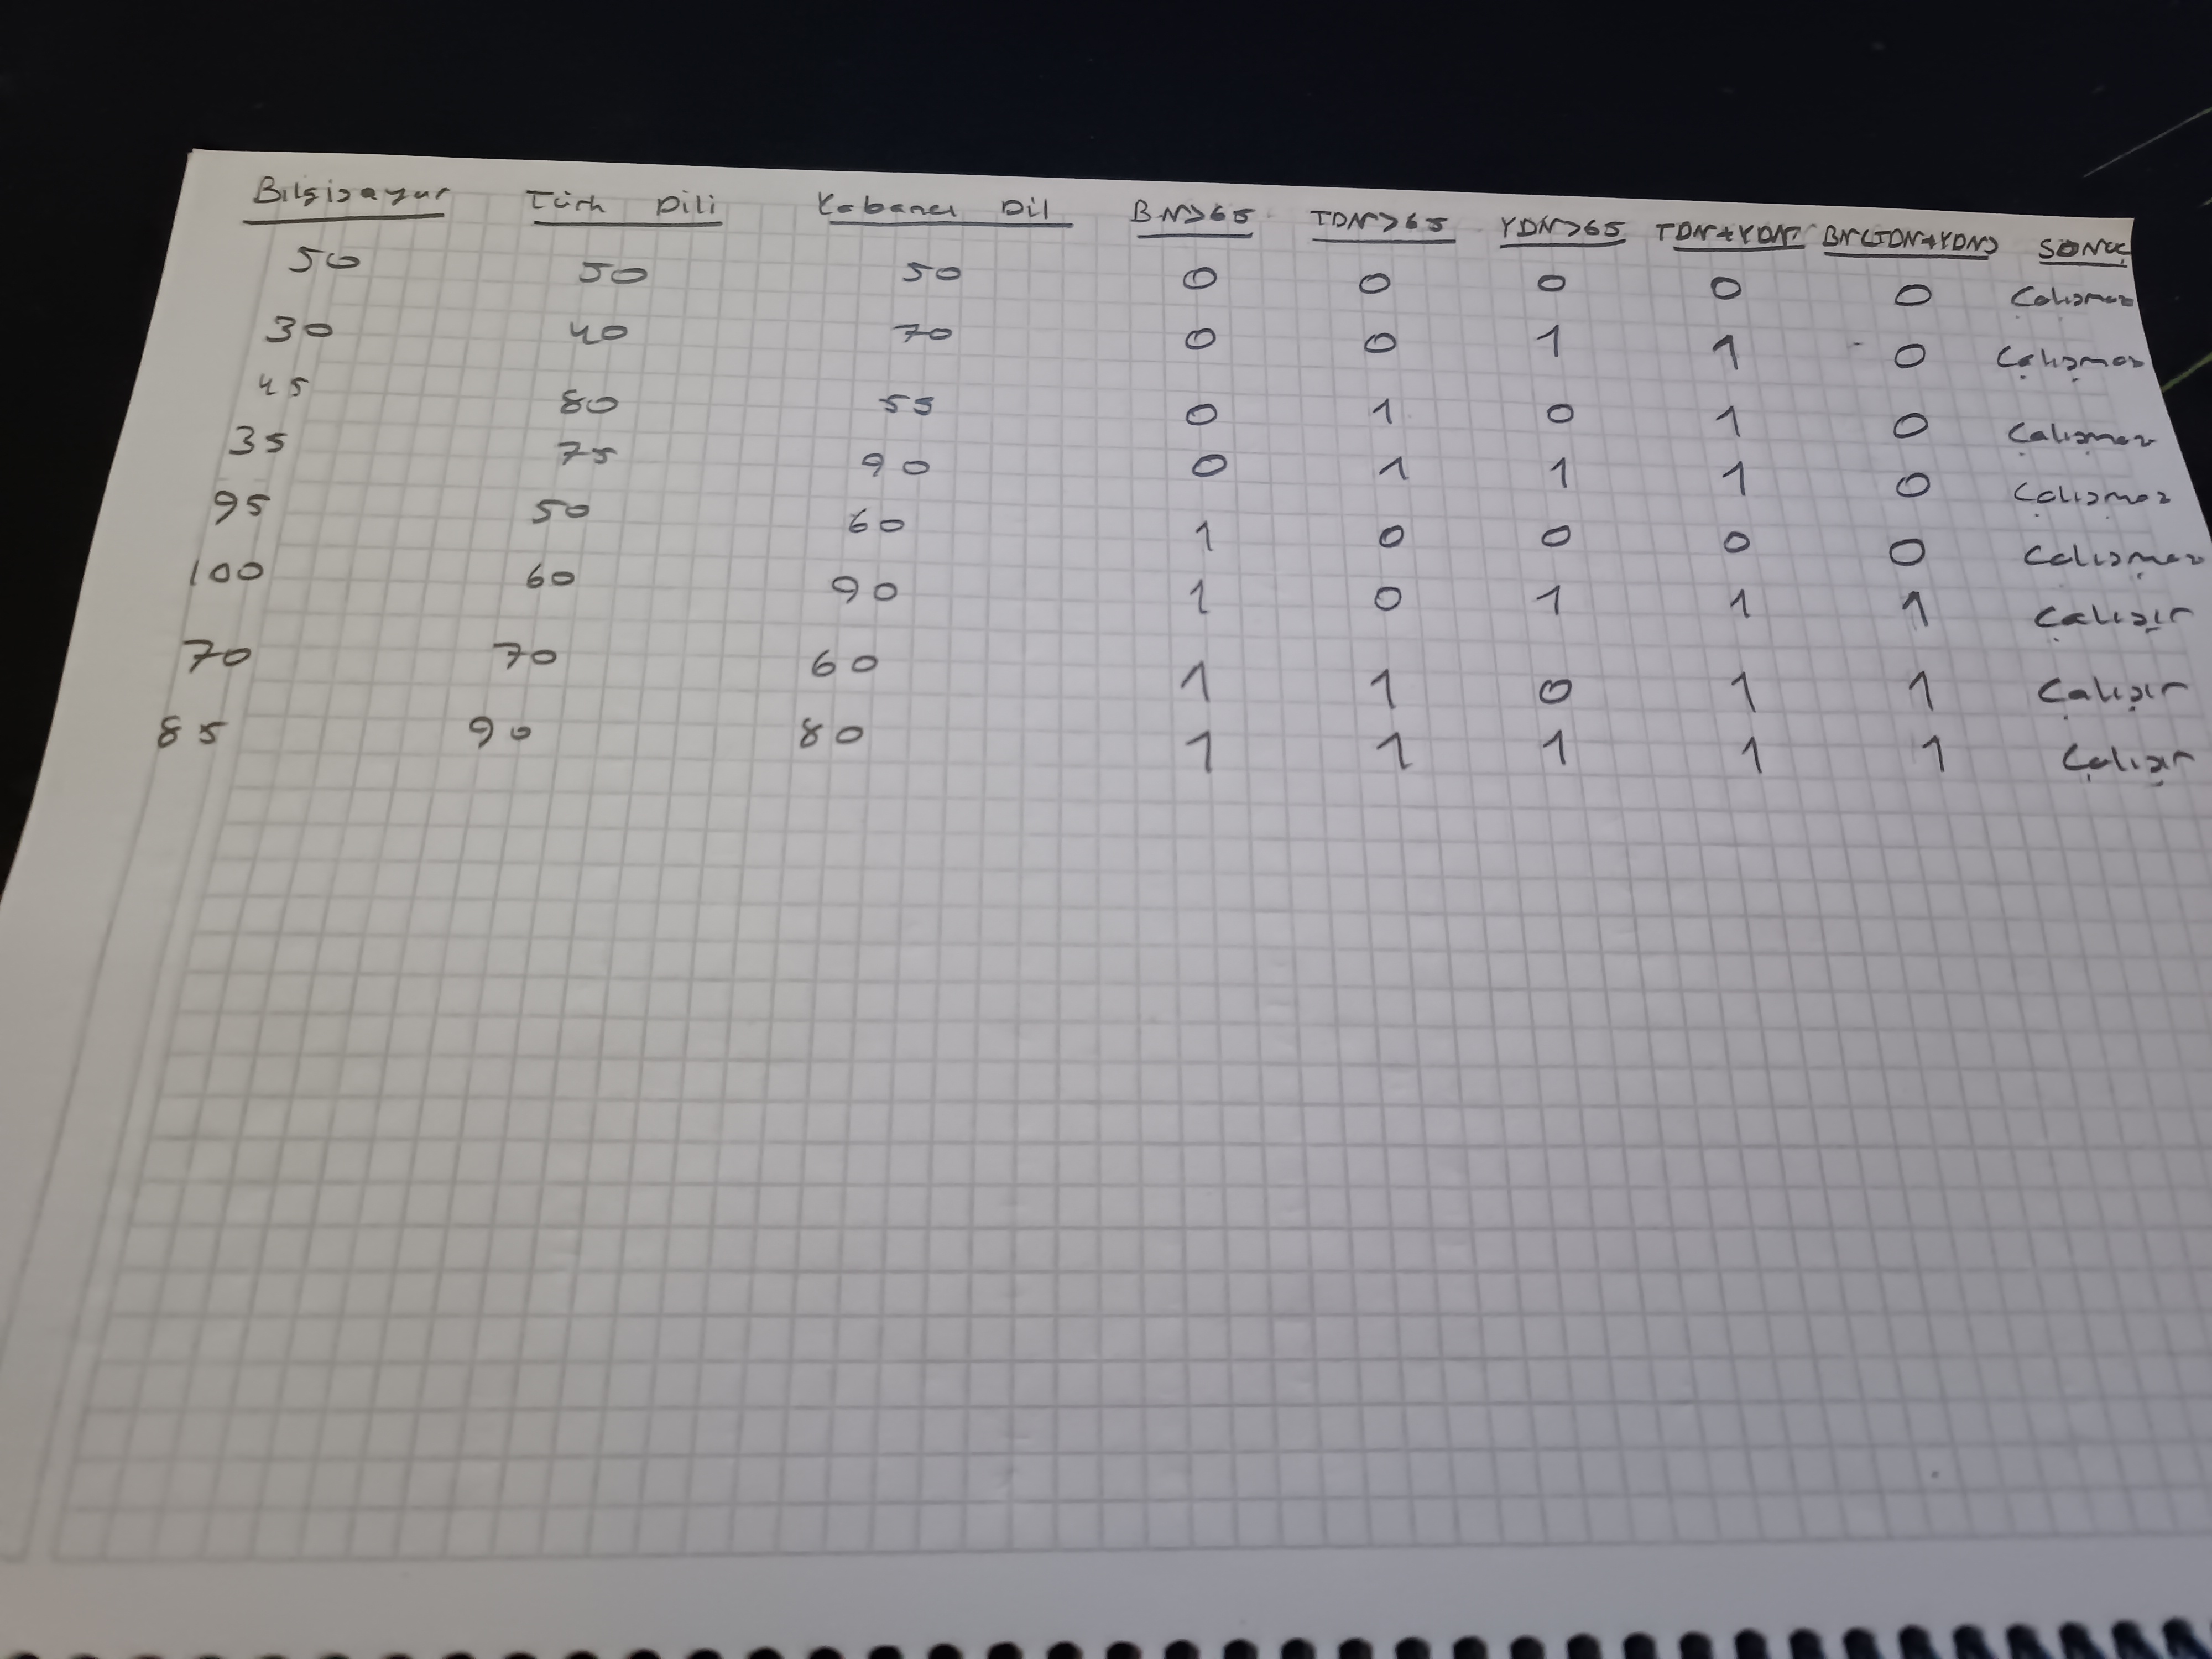 Bilgisayar Türk Dili Yabancı Dil BN>65 TDN>65 YDN>65 TDN+YDN BN(TDN+YDN) SONUÇ
50 50 50 0 0 0 0 0 Çalışmaz
30 40 70 0 0 1 1 0 Çalışmaz
45 80 55 0 1 0 1 0 Çalışmaz
35 75 90 0 1 1 1 0 Çalışmaz
95 50 60 1 0 0 0 0 Çalışmaz
100 60 90 1 0 1 1 1 Çalışır
70 70 60 1 1 0 1 1 Çalışır
85 90 80 1 1 1 1 1 Çalışır